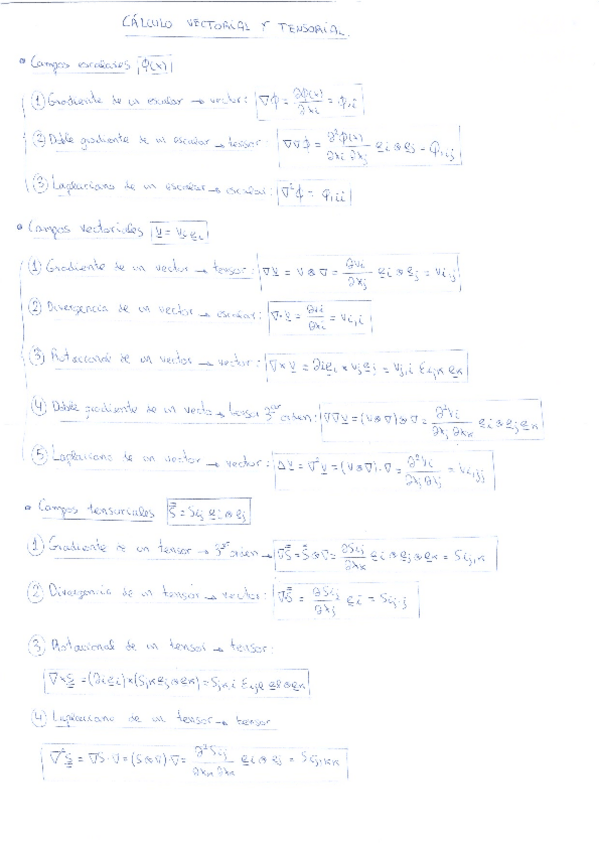 CÁLCULO VECTORIAL Y TENSORIAL.
• Campos escalares φ(x)
① Gradiente de un escalar → vector: ∇φ = ∂φ(x)/∂xi = φ,i
② Doble gradiente de un escalar → tensor: ∇∇φ = ∂²φ(x)/∂xi ∂xj ei⊗ej = φ,ij
③ Laplaciano de un escalar → escalar: ∇²φ = φ,ii
• Campos vectoriales v = vi ei
① Gradiente de un vector → tensor: ∇v = v⊗∇ = ∂vi/∂xj ei⊗ej = vi,j
② Divergencia de un vector → escalar: ∇·v = ∂vi/∂xi = vi,i
③ Rotacional de un vector → vector: ∇×v = ∂i ei × vj ej = vj,i εijk ek
④ Doble gradiente de un vector → tensor 3er orden: ∇∇v = (v⊗∇)⊗∇ = ∂²vi/∂xj ∂xk ei⊗ej ek
⑤ Laplaciano de un vector → vector: Δv = ∇²v = (v⊗∇)·∇ = ∂²vi/∂xj ∂xj = vi,jj
• Campos tensoriales S = Sij ei⊗ej
① Gradiente de un tensor → 3er orden → ∇S = S⊗∇ = ∂Sij/∂xk ei⊗ej⊗ek = Sij,k
② Divergencia de un tensor → vector: ∇S = ∂Sij/∂xj ei = Sij,j
③ Rotacional de un tensor → tensor:
∇×S = (∂i ei)×(Sjk ej⊗ek) = Sjk,i εijl el⊗ek
④ Laplaciano de un tensor → tensor
∇²S = ∇S·∇ = (S⊗∇)·∇ = ∂²Sij/∂xk ∂xk ei⊗ej = Sij,kk